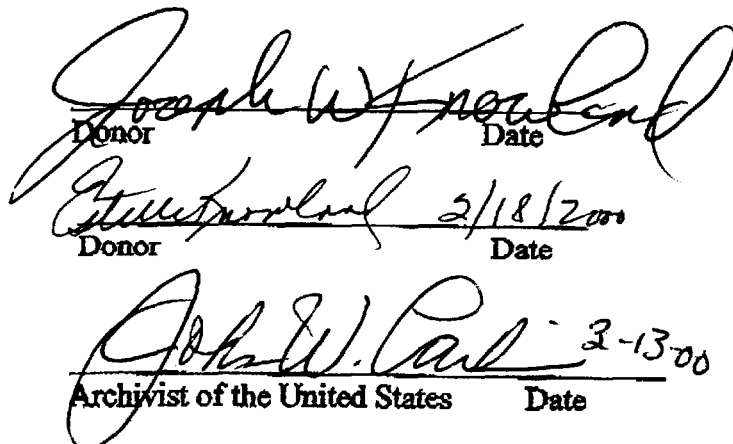 Joseph W Knowland
Donor Date
Estelle Knowland 2/18/2000
Donor Date
John W. Carl 3-13-00
Archivist of the United States Date